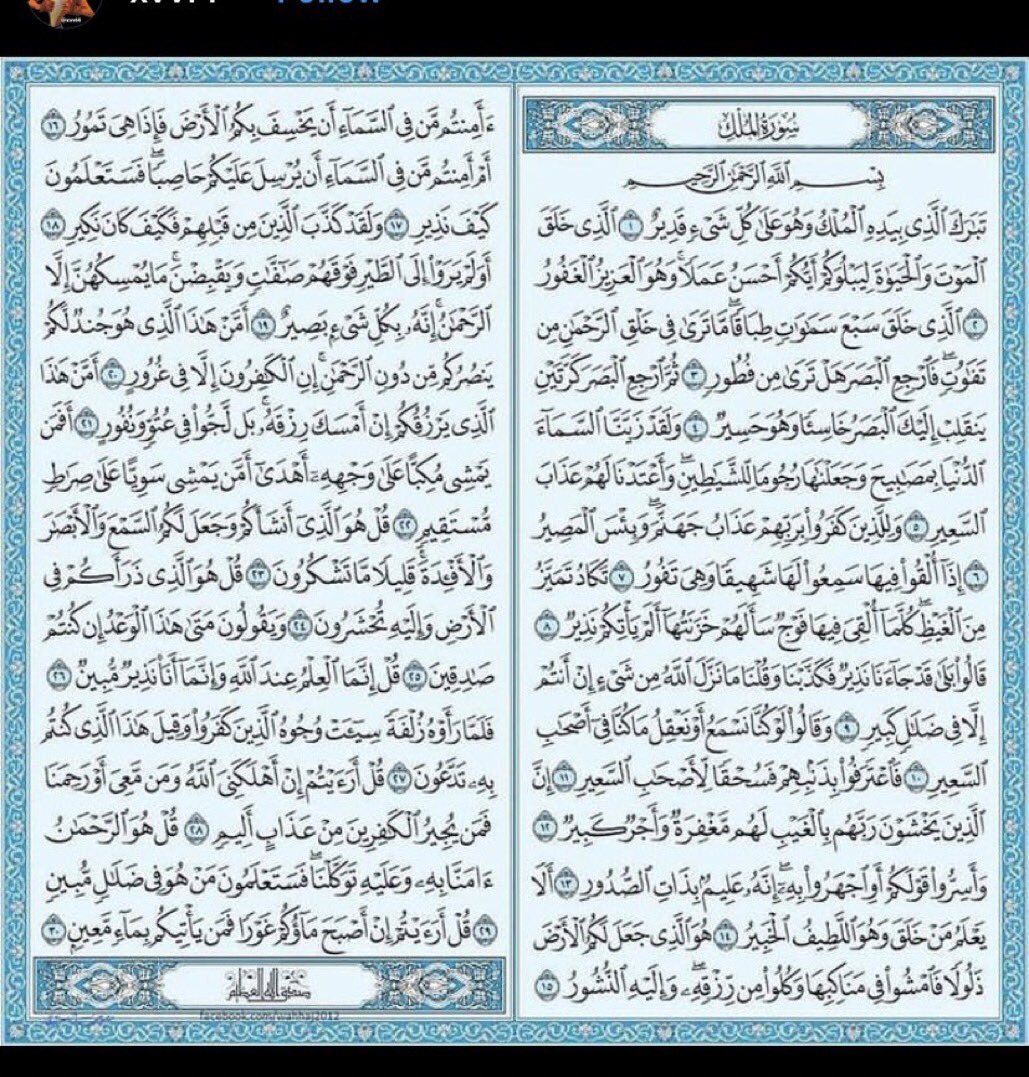 Follow
سُورَةُ الْمُلْكِ
بِسْمِ ٱللَّهِ ٱلرَّحْمَٰنِ ٱلرَّحِيمِ
تَبَٰرَكَ ٱلَّذِى بِيَدِهِ ٱلْمُلْكُ وَهُوَ عَلَىٰ كُلِّ شَىْءٍ قَدِيرٌ ١ ٱلَّذِى خَلَقَ
ٱلْمَوْتَ وَٱلْحَيَوٰةَ لِيَبْلُوَكُمْ أَيُّكُمْ أَحْسَنُ عَمَلًا ۚ وَهُوَ ٱلْعَزِيزُ ٱلْغَفُورُ
٢ ٱلَّذِى خَلَقَ سَبْعَ سَمَٰوَٰتٍ طِبَاقًا ۖ مَّا تَرَىٰ فِى خَلْقِ ٱلرَّحْمَٰنِ مِن
تَفَٰوُتٍ ۖ فَٱرْجِعِ ٱلْبَصَرَ هَلْ تَرَىٰ مِن فُطُورٍ ٣ ثُمَّ ٱرْجِعِ ٱلْبَصَرَ كَرَّتَيْنِ
يَنقَلِبْ إِلَيْكَ ٱلْبَصَرُ خَاسِئًا وَهُوَ حَسِيرٌ ٤ وَلَقَدْ زَيَّنَّا ٱلسَّمَآءَ
ٱلدُّنْيَا بِمَصَٰبِيحَ وَجَعَلْنَٰهَا رُجُومًا لِّلشَّيَٰطِينِ ۖ وَأَعْتَدْنَا لَهُمْ عَذَابَ
ٱلسَّعِيرِ ٥ وَلِلَّذِينَ كَفَرُوا۟ بِرَبِّهِمْ عَذَابُ جَهَنَّمَ ۖ وَبِئْسَ ٱلْمَصِيرُ
٦ إِذَآ أُلْقُوا۟ فِيهَا سَمِعُوا۟ لَهَا شَهِيقًا وَهِىَ تَفُورُ ٧ تَكَادُ تَمَيَّزُ
مِنَ ٱلْغَيْظِ ۖ كُلَّمَآ أُلْقِىَ فِيهَا فَوْجٌ سَأَلَهُمْ خَزَنَتُهَآ أَلَمْ يَأْتِكُمْ نَذِيرٌ ٨
قَالُوا۟ بَلَىٰ قَدْ جَآءَنَا نَذِيرٌ فَكَذَّبْنَا وَقُلْنَا مَا نَزَّلَ ٱللَّهُ مِن شَىْءٍ إِنْ أَنتُمْ
إِلَّا فِى ضَلَٰلٍ كَبِيرٍ ٩ وَقَالُوا۟ لَوْ كُنَّا نَسْمَعُ أَوْ نَعْقِلُ مَا كُنَّا فِىٓ أَصْحَٰبِ
ٱلسَّعِيرِ ١٠ فَٱعْتَرَفُوا۟ بِذَنۢبِهِمْ فَسُحْقًا لِّأَصْحَٰبِ ٱلسَّعِيرِ ١١ إِنَّ
ٱلَّذِينَ يَخْشَوْنَ رَبَّهُم بِٱلْغَيْبِ لَهُم مَّغْفِرَةٌ وَأَجْرٌ كَبِيرٌ ١٢
وَأَسِرُّوا۟ قَوْلَكُمْ أَوِ ٱجْهَرُوا۟ بِهِۦٓ ۖ إِنَّهُۥ عَلِيمٌۢ بِذَاتِ ٱلصُّدُورِ ١٣ أَلَا
يَعْلَمُ مَنْ خَلَقَ وَهُوَ ٱللَّطِيفُ ٱلْخَبِيرُ ١٤ هُوَ ٱلَّذِى جَعَلَ لَكُمُ ٱلْأَرْضَ
ذَلُولًا فَٱمْشُوا۟ فِى مَنَاكِبِهَا وَكُلُوا۟ مِن رِّزْقِهِۦ ۖ وَإِلَيْهِ ٱلنُّشُورُ ١٥
ءَأَمِنتُم مَّن فِى ٱلسَّمَآءِ أَن يَخْسِفَ بِكُمُ ٱلْأَرْضَ فَإِذَا هِىَ تَمُورُ ١٦
أَمْ أَمِنتُم مَّن فِى ٱلسَّمَآءِ أَن يُرْسِلَ عَلَيْكُمْ حَاصِبًا ۖ فَسَتَعْلَمُونَ
كَيْفَ نَذِيرِ ١٧ وَلَقَدْ كَذَّبَ ٱلَّذِينَ مِن قَبْلِهِمْ فَكَيْفَ كَانَ نَكِيرِ ١٨
أَوَلَمْ يَرَوْا۟ إِلَى ٱلطَّيْرِ فَوْقَهُمْ صَٰٓفَّٰتٍ وَيَقْبِضْنَ ۚ مَا يُمْسِكُهُنَّ إِلَّا
ٱلرَّحْمَٰنُ ۚ إِنَّهُۥ بِكُلِّ شَىْءٍۭ بَصِيرٌ ١٩ أَمَّنْ هَٰذَا ٱلَّذِى هُوَ جُندٌ لَّكُمْ
يَنصُرُكُم مِّن دُونِ ٱلرَّحْمَٰنِ ۚ إِنِ ٱلْكَٰفِرُونَ إِلَّا فِى غُرُورٍ ٢٠ أَمَّنْ هَٰذَا
ٱلَّذِى يَرْزُقُكُمْ إِنْ أَمْسَكَ رِزْقَهُۥ ۚ بَل لَّجُّوا۟ فِى عُتُوٍّ وَنُفُورٍ ٢١ أَفَمَن
يَمْشِى مُكِبًّا عَلَىٰ وَجْهِهِۦٓ أَهْدَىٰٓ أَمَّن يَمْشِى سَوِيًّا عَلَىٰ صِرَٰطٍ
مُّسْتَقِيمٍ ٢٢ قُلْ هُوَ ٱلَّذِىٓ أَنشَأَكُمْ وَجَعَلَ لَكُمُ ٱلسَّمْعَ وَٱلْأَبْصَٰرَ
وَٱلْأَفْـِٔدَةَ ۖ قَلِيلًا مَّا تَشْكُرُونَ ٢٣ قُلْ هُوَ ٱلَّذِى ذَرَأَكُمْ فِى
ٱلْأَرْضِ وَإِلَيْهِ تُحْشَرُونَ ٢٤ وَيَقُولُونَ مَتَىٰ هَٰذَا ٱلْوَعْدُ إِن كُنتُمْ
صَٰدِقِينَ ٢٥ قُلْ إِنَّمَا ٱلْعِلْمُ عِندَ ٱللَّهِ وَإِنَّمَآ أَنَا۠ نَذِيرٌ مُّبِينٌ ٢٦
فَلَمَّا رَأَوْهُ زُلْفَةً سِيٓـَٔتْ وُجُوهُ ٱلَّذِينَ كَفَرُوا۟ وَقِيلَ هَٰذَا ٱلَّذِى كُنتُم
بِهِۦ تَدَّعُونَ ٢٧ قُلْ أَرَءَيْتُمْ إِنْ أَهْلَكَنِىَ ٱللَّهُ وَمَن مَّعِىَ أَوْ رَحِمَنَا
فَمَن يُجِيرُ ٱلْكَٰفِرِينَ مِنْ عَذَابٍ أَلِيمٍ ٢٨ قُلْ هُوَ ٱلرَّحْمَٰنُ
ءَامَنَّا بِهِۦ وَعَلَيْهِ تَوَكَّلْنَا ۖ فَسَتَعْلَمُونَ مَنْ هُوَ فِى ضَلَٰلٍ مُّبِينٍ
٢٩ قُلْ أَرَءَيْتُمْ إِنْ أَصْبَحَ مَآؤُكُمْ غَوْرًا فَمَن يَأْتِيكُم بِمَآءٍ مَّعِينٍۭ ٣٠
صدق الله العظيم
facebook.com/wahhaj2012